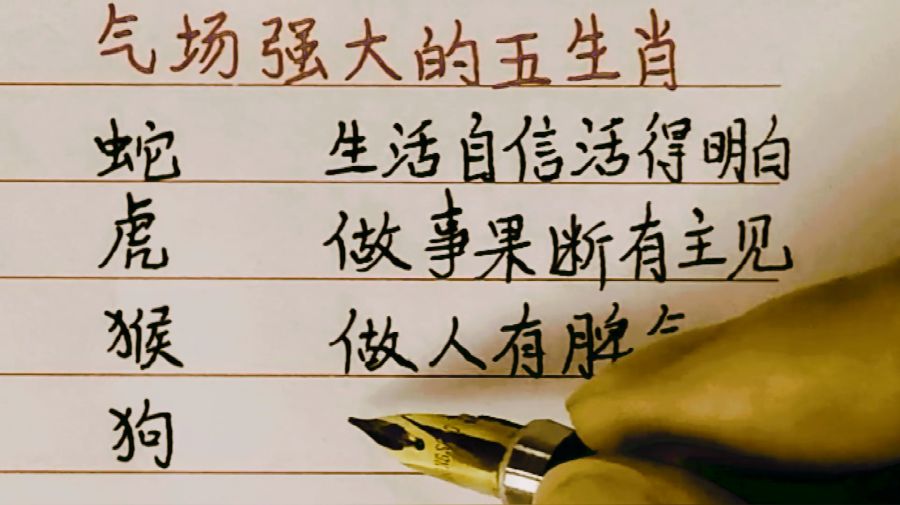 气场强大的五生肖
蛇 生活自信活得明白
虎 做事果断有主见
猴 做人有脾气
狗